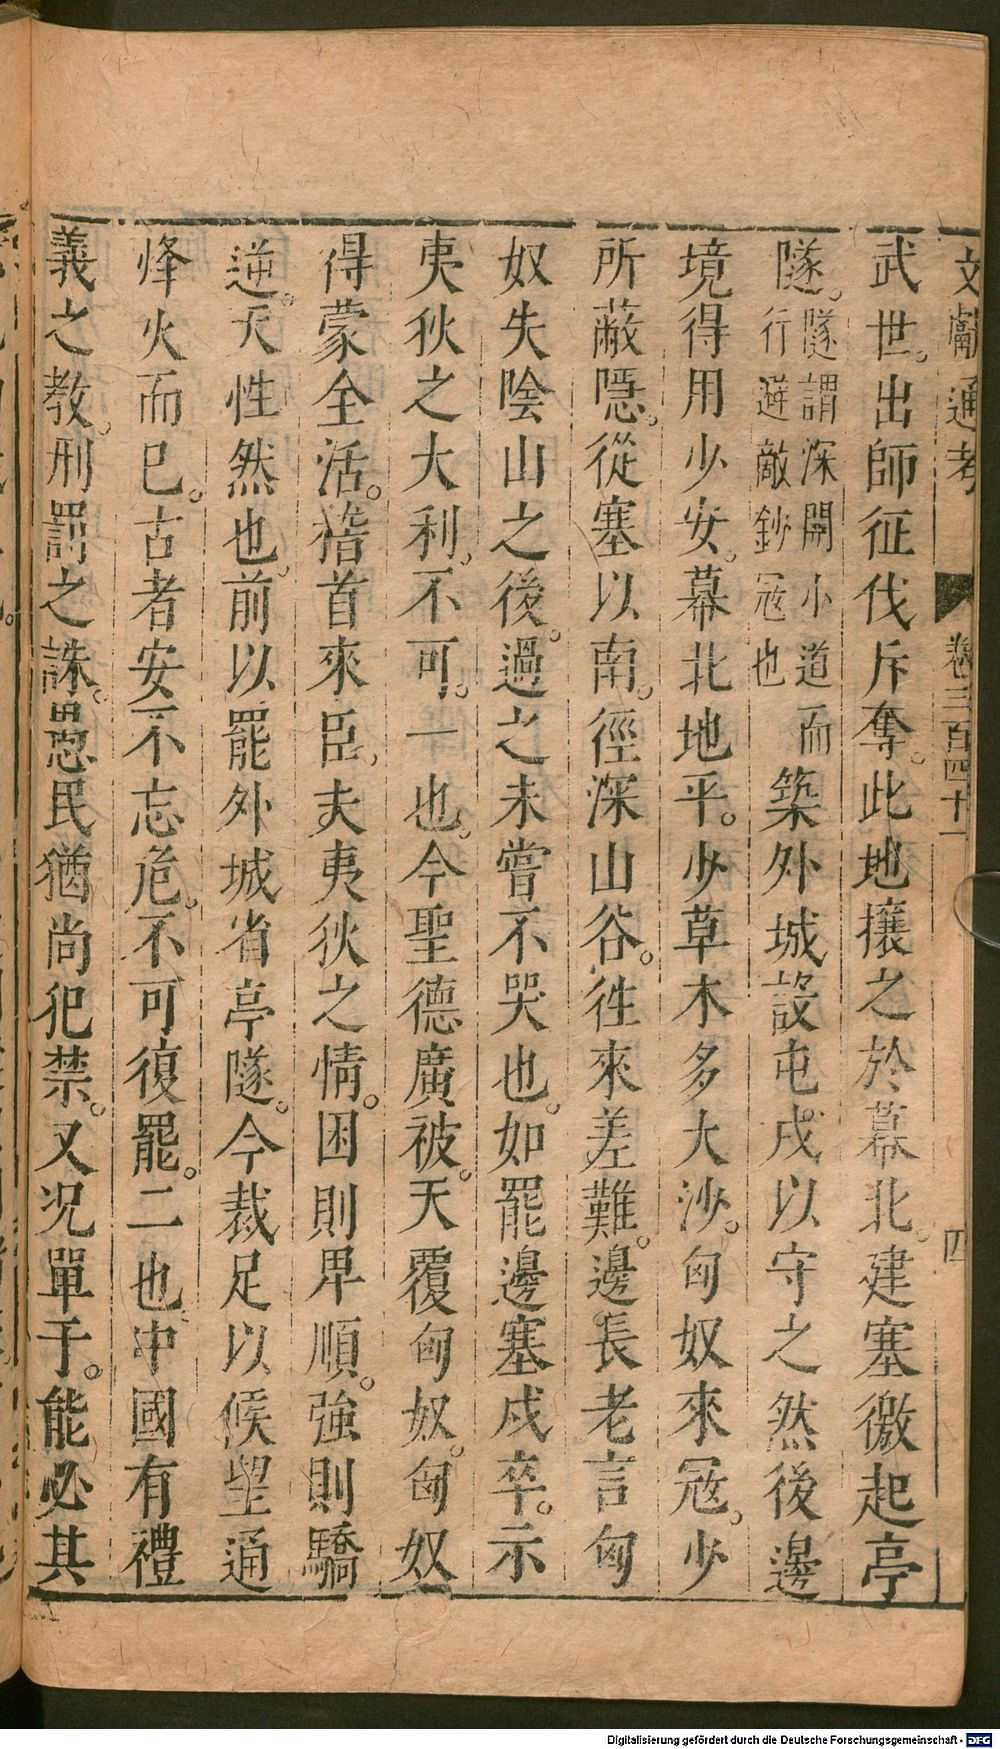 文獻通考 卷三百四十一 四
武世。出師征伐斥奪。此地攘之於幕北。建塞徼起亭
隧。隧謂深開小道而行避敵鈔寇也築外城設屯戍以守之然後邊
境得用少安。幕北地平。少草木多大沙。匈奴來寇。少
所蔽隱。從塞以南。徑深山谷。徃來差難。邊長老言匈
奴失陰山之後。過之未嘗不哭也。如罷邊塞戍卒。示
夷狄之大利。不可。一也。今聖德廣被。天覆匈奴。匈奴
得蒙全活。稽首來臣。夫夷狄之情。困則卑順。強則驕
逆。天性然也。前以罷外城省亭隧。今裁足以候望通
烽火而已。古者安不忘危。不可復罷。二也。中國有禮
義之教。刑罰之誅。愚民猶尚犯禁。又况單于。能必其
Digitalisierung gefördert durch die Deutsche Forschungsgemeinschaft - DFG